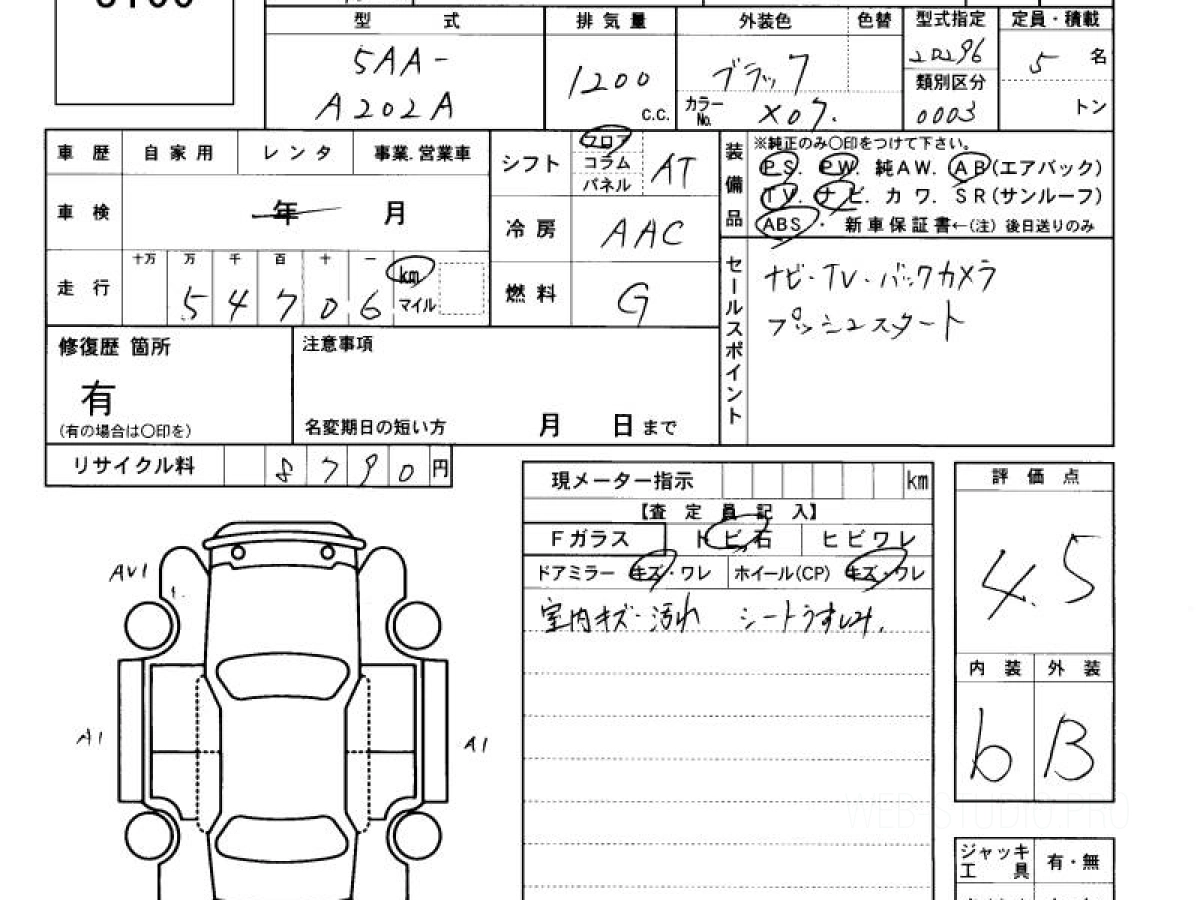 型式 排気量 外装色 色替 型式指定 定員・積載
5AA-
A202A
1200 c.c.
ブラック
カラーNo. X07.
20296
類別区分
0003
5 名
トン
車歴 自家用 レンタ 事業.営業車
車検 年 月
走行 十万 万 千 百 十 一
5 4 7 0 6 km マイル
シフト フロア コラム パネル AT
冷房 AAC
燃料 G
装備品
※純正のみ〇印をつけて下さい。
PS. PW. 純AW. AB(エアバック)
TV. ナビ. カワ. SR(サンルーフ)
ABS・ 新車保証書←(注) 後日送りのみ
セールスポイント
ナビ・TV・バックカメラ
プッシュスタート
修復歴 箇所
有
(有の場合は〇印を)
注意事項
名変期日の短い方 月 日まで
リサイクル料 8 7 9 0 円
現メーター指示 km
【査定員記入】
Fガラス トビ石 ヒビワレ
ドアミラー キズ・ワレ ホイール(CP) キズ・ワレ
室内キズ・汚れ シートうすしみ.
評価点
4.5
内装 外装
b B
AU1
A1
A1
WEB-STUDIO.PRO
ジャッキ 有・無
工具